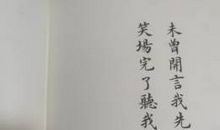 未曾開言我先
笑場完了聽我